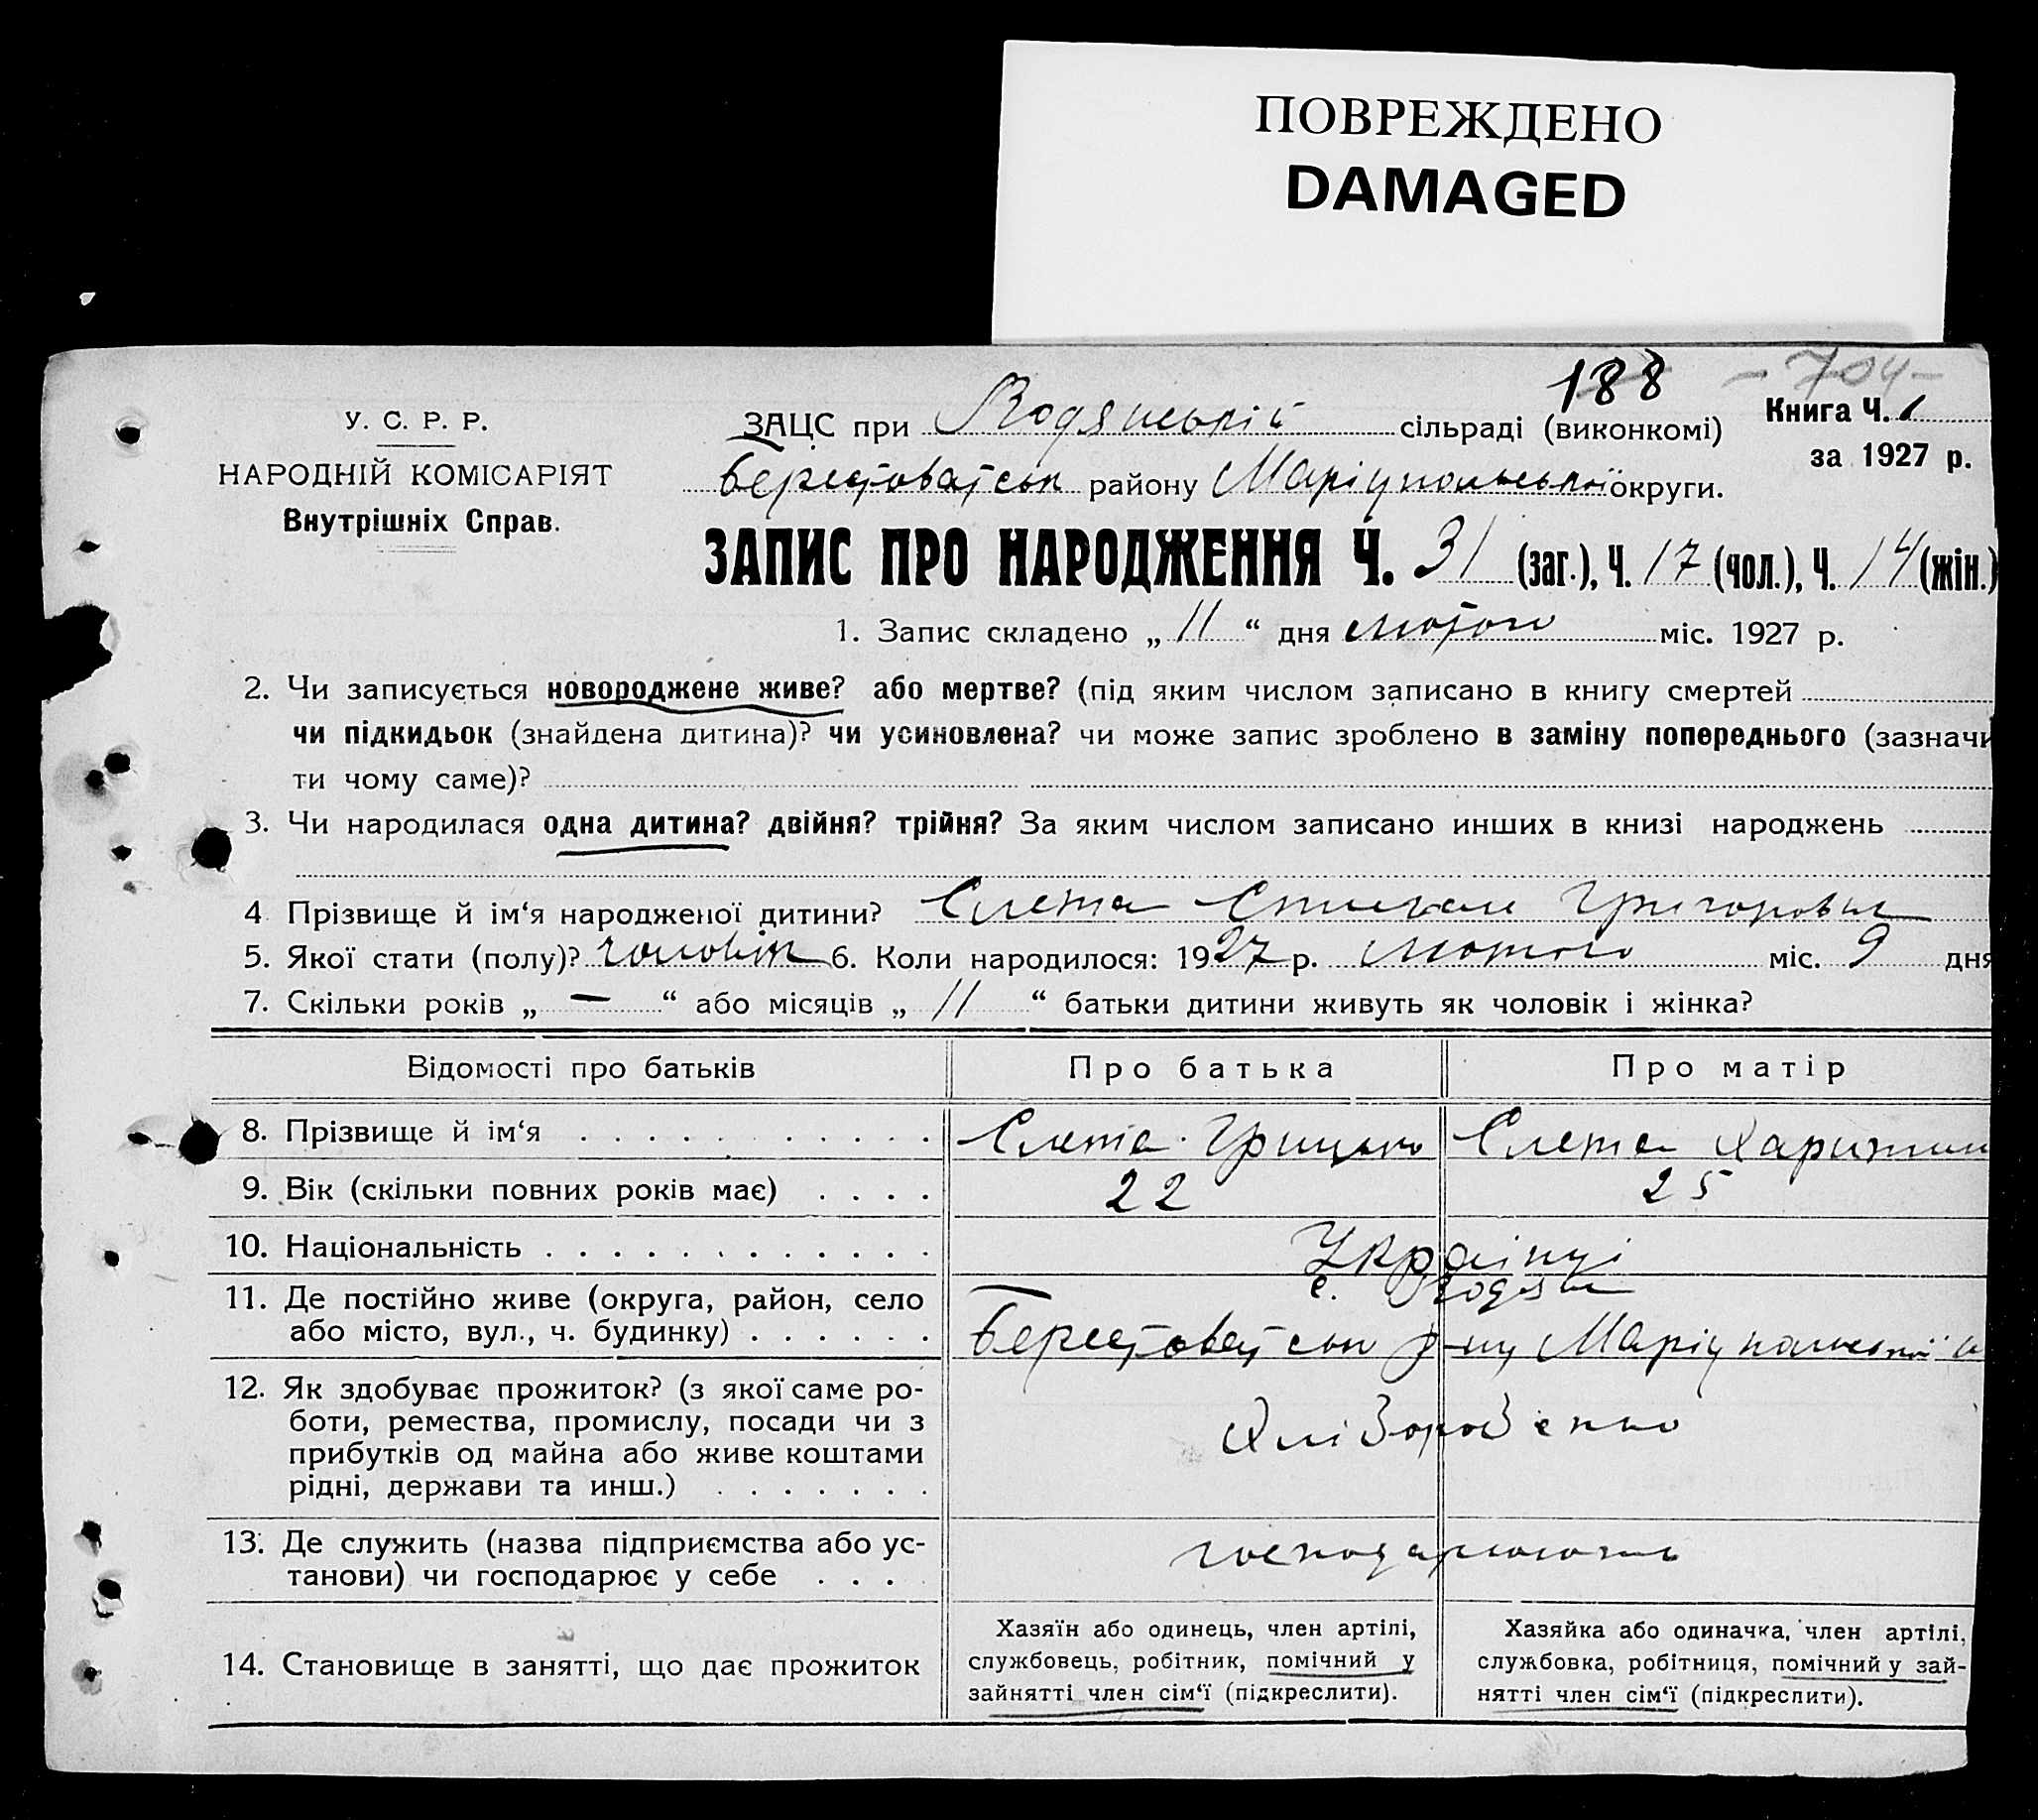 ПОВРЕЖДЕНО
DAMAGED
188 - 704 -
У. С. Р. Р.
НАРОДНІЙ КОМІСАРІЯТ
Внутрішніх Справ.
ЗАЦС при Водянській сільраді (виконкомі)
Книга Ч. 1
за 1927 р.
Берестоватськ району Маріупольської округи.
ЗАПИС ПРО НАРОДЖЕННЯ Ч. 31 (заг.), Ч. 17 (чол.), Ч. 14 (жін.)
1. Запис складено „ 11 “ дня лютого міс. 1927 р.
2. Чи записується новороджене живе? або мертве? (під яким числом записано в книгу смертей
чи підкидьок (знайдена дитина)? чи усиновлена? чи може запис зроблено в заміну попереднього (зазначи
ти чому саме)?
3. Чи народилася одна дитина? двійня? трійня? За яким числом записано инших в книзі народжень
4 Прізвище й ім‘я народженої дитини? Єлета Григоров
5. Якої стати (полу)? чоловік 6. Коли народилося: 1927 р. лютого міс. 9 дня
7. Скільки років „ — “ або місяців „ 11 “ батьки дитини живуть як чоловік і жінка?
Відомості про батьків Про батька Про матір
8. Прізвище й ім‘я Єлета Грицько Єлета Харитин
9. Вік (скільки повних років має) 22 25
10. Національність Українці
11. Де постійно живе (округа, район, село с. Водян
або місто, вул., ч. будинку) Берестоватськ р-ну Маріупольської
12. Як здобуває прожиток? (з якої саме ро-
боти, ремества, промислу, посади чи з Хліборобєнко
прибутків од майна або живе коштами
рідні, держави та инш.)
13. Де служить (назва підприємства або ус-
танови) чи господарює у себе господарюють
14. Становище в занятті, що дає прожиток
Хазяїн або одинець, член артілі,
службовець, робітник, помічний у
зайнятті член сім‘ї (підкреслити).
Хазяйка або одиначка, член артілі,
службовка, робітниця, помічний у зай-
нятті член сім‘ї (підкреслити).